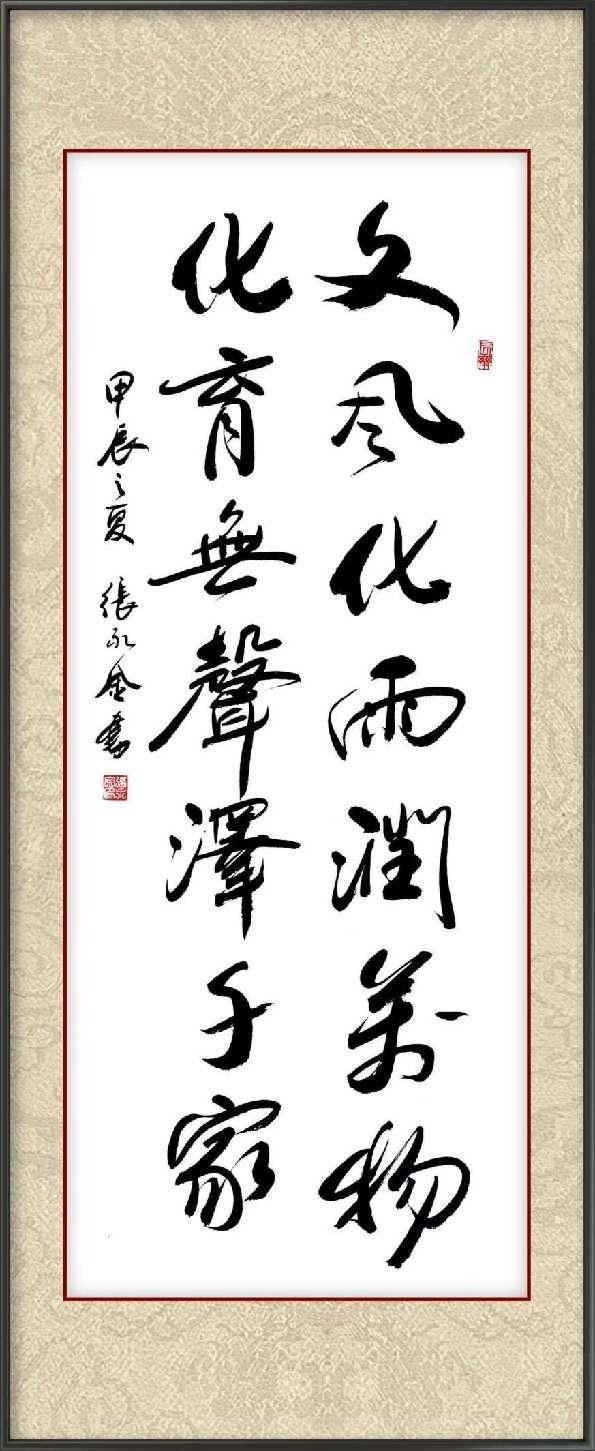 文风化雨潤萬物
化育無聲澤千家
甲辰之夏 張永金書